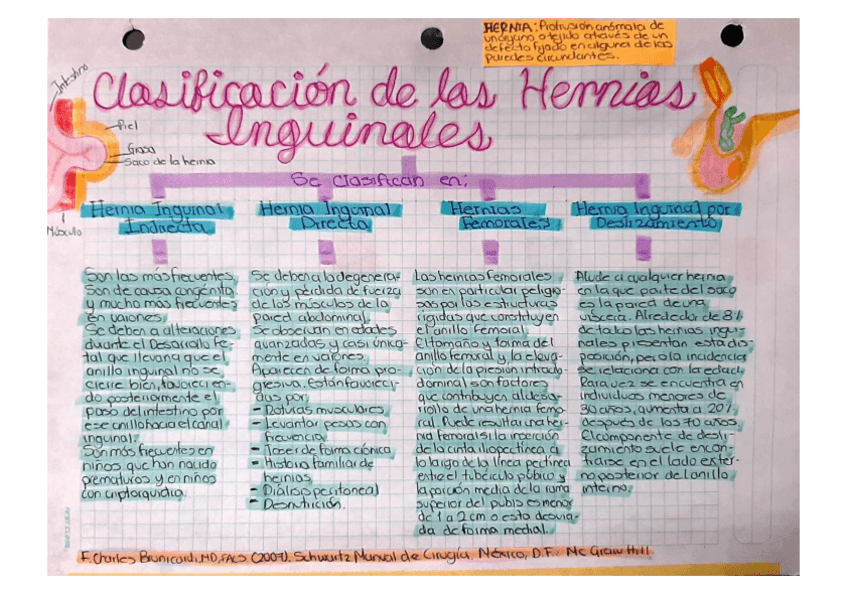 HERNIA: Protrusión anómala de
un órgano o tejido a través de un
defecto fijado en alguna de las
paredes circundantes.
Clasificación de las Hernias
Inguinales
Intestino
Piel
Grasa
Saco de la hernia
Músculo
Se clasifican en:
Hernia Inguinal
Indirecta
Son las más frecuentes.
Son de causa congénita
y mucho más frecuentes
en varones.
Se deben a alteraciones
durante el Desarrollo Fe-
tal que llevan a que el
anillo inguinal no se
cierre bien, favorecien-
do posteriormente el
paso del intestino por
ese anillo hacia el canal
inguinal.
Son más frecuentes en
niños que han nacido
prematuros y en niños
con criptorquidia.
Hernia Inguinal
Directa
Se deben a la degenera-
ción y pérdida de fuerza
de los músculos de la
pared abdominal.
Se observan en edades
avanzadas y casi única-
mente en varones.
Aparecen de forma pro-
gresiva. Están favoreci-
das por:
- Roturas musculares
- Levantar pesos con
frecuencia
- Toser de forma crónica
- Historia familiar de
hernias
- Diálisis peritoneal
- Desnutrición.
Hernias
Femorales
Las hernias femorales
son en particular peligro-
sas por las estructuras
rígidas que constituyen
el anillo femoral.
El tamaño y forma del
anillo femoral y la eleva-
ción de la presión intrab-
dominal son factores
que contribuyen al desa-
rrollo de una hernia femo-
ral. Puede resultar una her-
nia femoral si la inserción
de la cinta iliopectínea a
lo largo de la línea pectínea
entre el tubérculo púbico y
la porción media de la rama
superior del pubis es menor
de 1 a 2 cm o esta desvia-
da de forma medial.
Hernia Inguinal por
Deslizamiento
Alude a cualquier hernia
en la que parte del saco
es la pared de una
víscera. Alrededor de 8%
de todas las hernias ingui-
nales presentan esta dis-
posición, pero la incidencia
se relaciona con la edad.
Rara vez se encuentra en
individuos menores de
30 años, aumenta a 20%
después de los 70 años.
El componente de desli-
zamiento suele encon-
trarse en el lado exter-
no posterior del anillo
interno.
F. Charles Brunicardi, MD, FACS (2007). Schwartz Manual de Cirugía, México, D.F.: Mc Graw Hill.